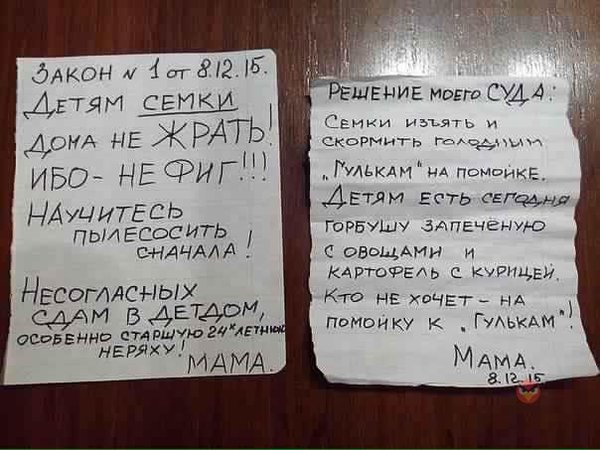 ЗАКОН N 1 от 8.12.15.
ДЕТЯМ СЕМКИ
ДОМА НЕ ЖРАТЬ!
ИБО - НЕ ФИГ!!!
НАУЧИТЕСЬ
ПЫЛЕСОСИТЬ
СНАЧАЛА!
НЕСОГЛАСНЫХ
СДАМ В ДЕТДОМ,
ОСОБЕННО СТАРШУЮ 24х ЛЕТНЮЮ
НЕРЯХУ!
МАМА.
РЕШЕНИЕ МОЕГО СУДА:
СЕМКИ ИЗЪЯТЬ И
СКОРМИТЬ ГОЛОДНЫМ
„ГУЛЬКАМ" НА ПОМОЙКЕ.
ДЕТЯМ ЕСТЬ СЕГОДНЯ
ГОРБУШУ ЗАПЕЧЁНУЮ
С ОВОЩАМИ И
КАРТОФЕЛЬ С КУРИЦЕЙ.
КТО НЕ ХОЧЕТ - НА
ПОМОЙКУ К „ГУЛЬКАМ"!
МАМА.
8.12.15